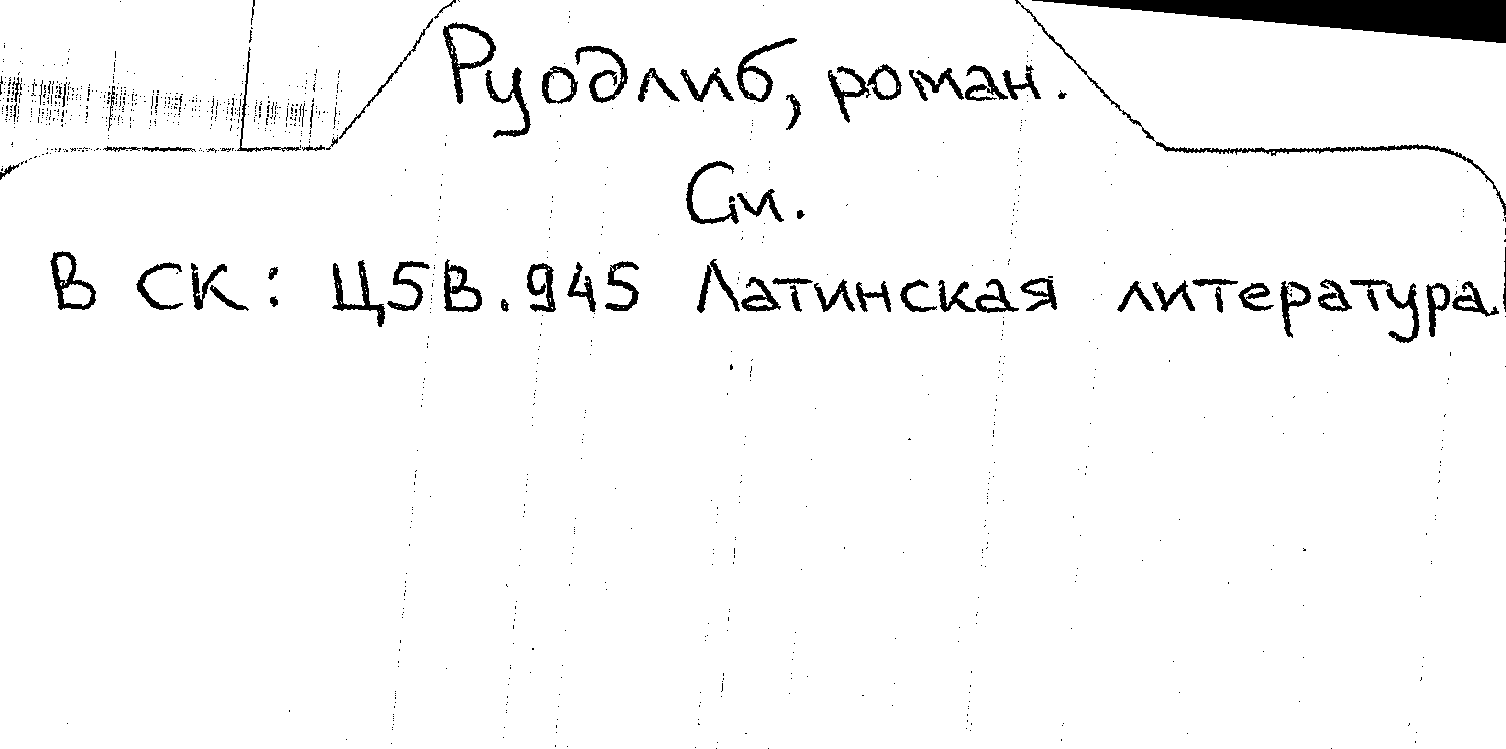 Руодлиб, роман.
См.
В СК: Ц5В.945 Латинская литература.